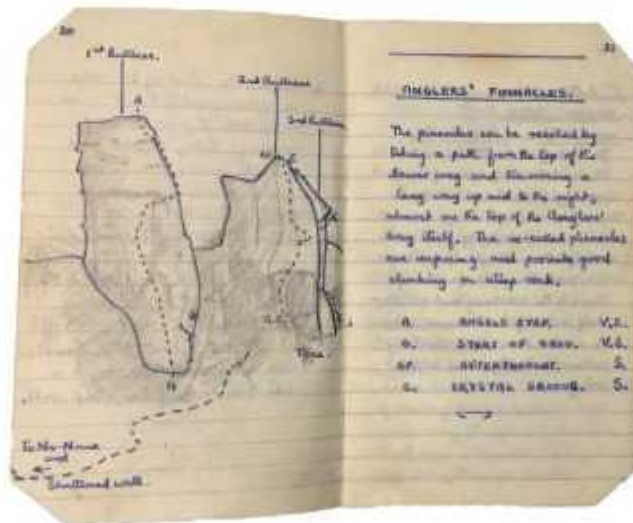 30
1st Buttress.
A
2nd Buttress
3rd Buttress
A
Tree
To No-Name
and
Shattered wall
31
ANGLERS' PINNACLES.
The pinnacles can be reached by
taking a path from the top of the
lower way and traversing a
long way up and to the right,
almost on the top of the Anglers'
way itself. The so-called pinnacles
are imposing and provide good
climbing on steep rock.
A. ANGELS STEP. V.S.
O. START OF V.S.
AFTERTHOUGHT. S.
C. CRYSTAL GROOVE. S.